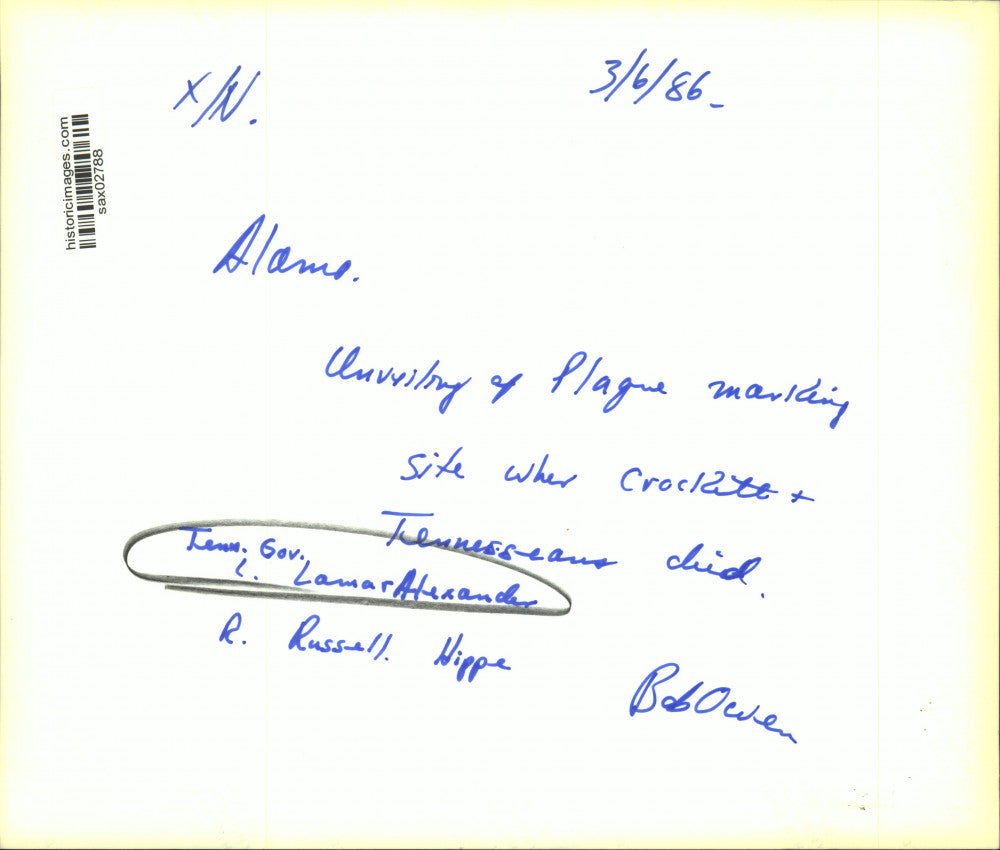 x/N.
3/6/86-
historicimages.com
sax02788
Alamo.
Unveiling of Plaque marking
site wher Crockett +
Tennesseans died.
Tenn. Gov.
L. Lamar Alexander
R. Russell. Hippe
Bob Owen